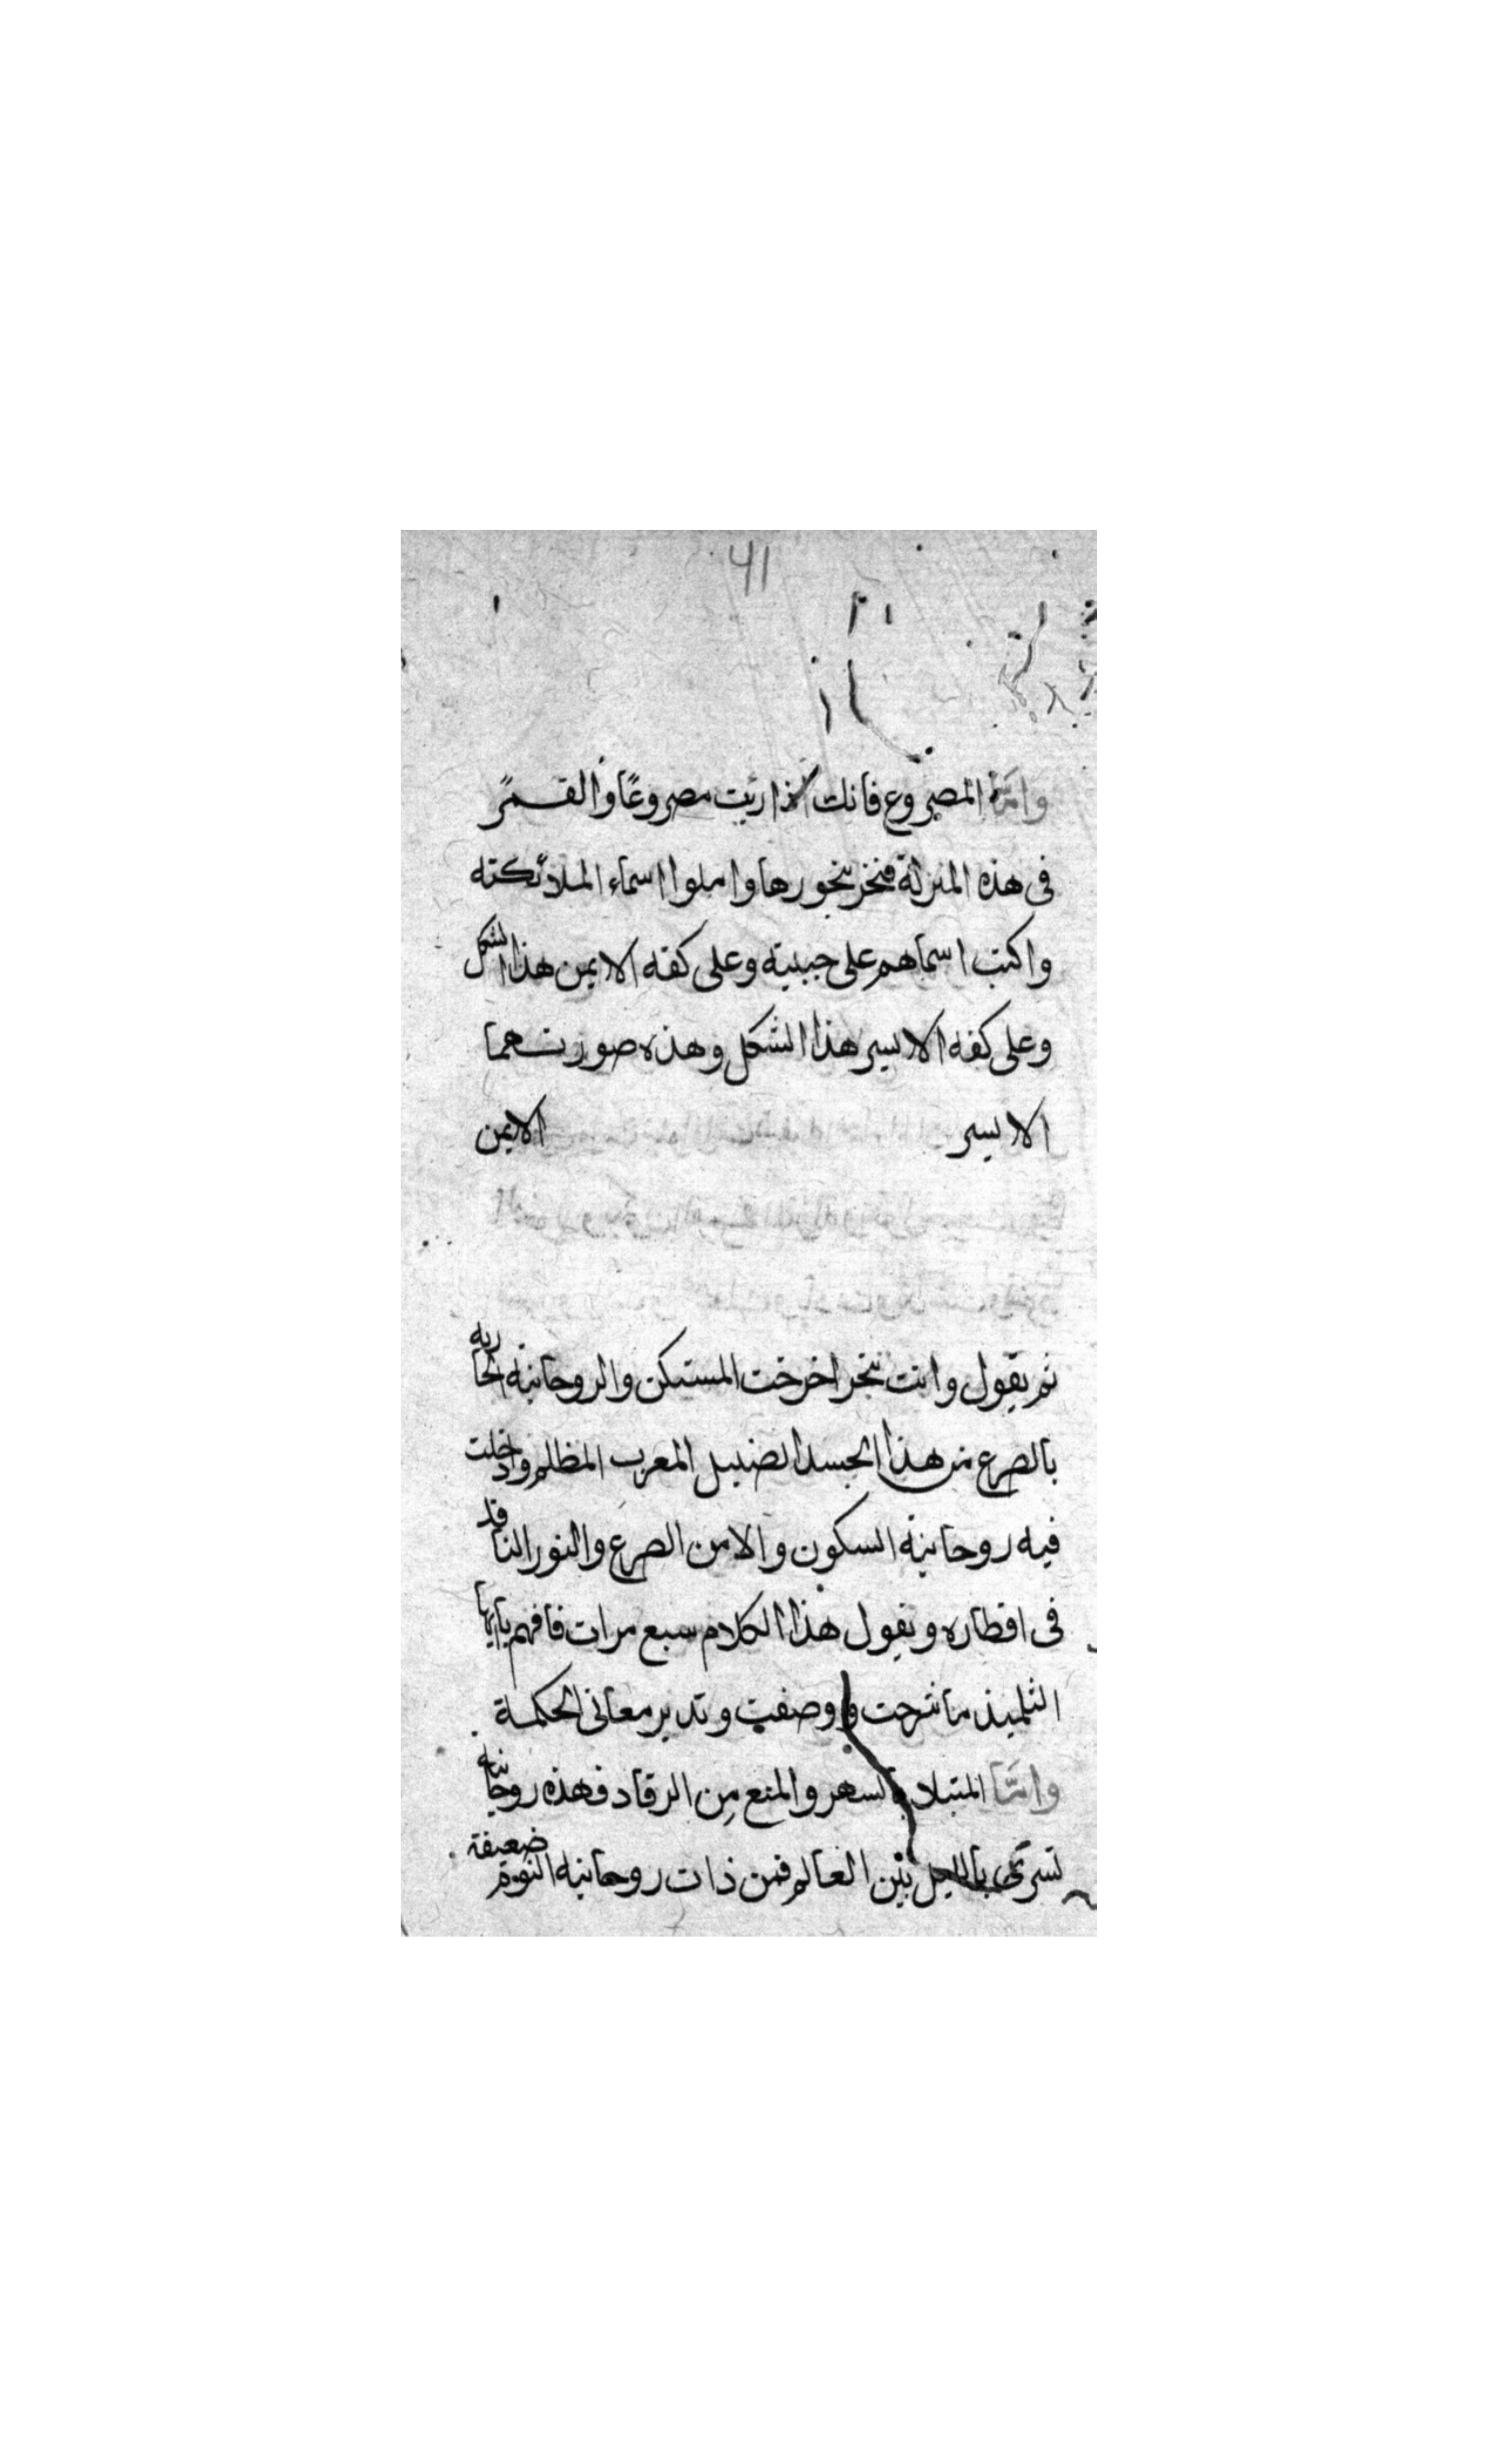 41
وامّا المصروع فانك اذا رئيت مصروعًا والقمر
فى هذه المنزلة فبخر ببخورها واملوا اسماء الملائكته
واكتب اسماهم على جبينه وعلى كفه الايمن هذا الشكل
وعلى كفه الايسر هذا الشكل وهذه صورتهما
الايسر الايمن
ثم يقول وانت تبخر اخرجت المستكن والروحانية الحاريه
بالصرع من هذا الجسد المظلم وادخلت
فيه روحانية السكون والامن الصرع والنور النافد
فى اقطاره ويقول هذا الكلام سبع مرات فافهم يايها
التلميذ ما شرحت ووصفت وتدبر معانى الحكمة
وامّا المتبلا بالسهر والمنع من الرقاد فهذه روحانيه
تسرى بالليل بين العالم فمن ذات روحانيه النوم ضعيفة